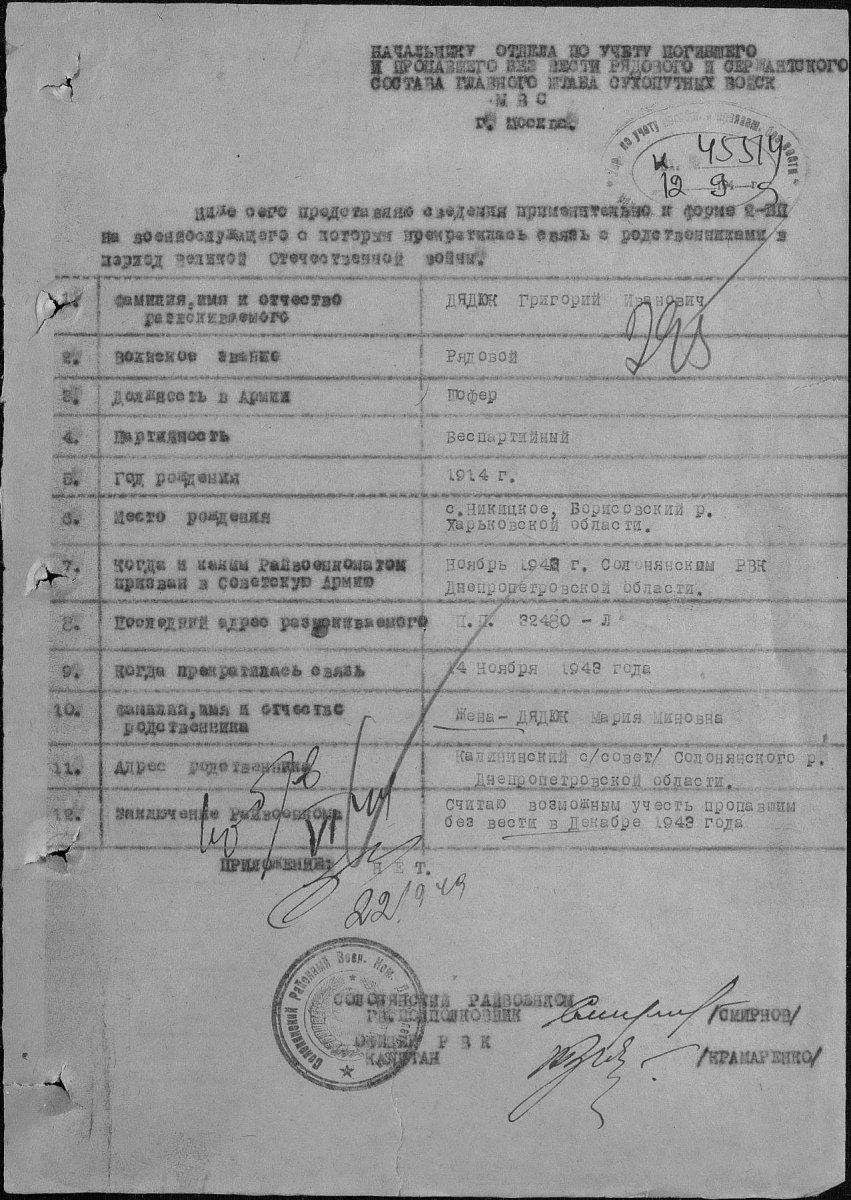 НАЧАЛЬНИКУ ОТДЕЛА ПО УЧЕТУ ПОГИБШЕГО
И ПРОПАВШЕГО БЕЗ ВЕСТИ РЯДОВОГО И СЕРЖАНТСКОГО
СОСТАВА ГЛАВНОГО ШТАБА СУХОПУТНЫХ ВОЙСК
М В С
г. Москва.
по учету
без вести
н 45514
12 9
Ниже сего представляю сведения применительно к форме 2-БП
на военнослужащего с которым прекратилась связь с родственниками в
период Великой Отечественной войны.
1. Фамилия, имя и отчество ДЯДЮК Григорий Иванович
разыскиваемого
2. Воинское звание Рядовой
3. Должность в Армии Шофер
4. Партийность Беспартийный
5. Год рождения 1914 г.
6. Место рождения с.Никицкое, Борисовский р.
Харьковской области.
7. Когда и каким Райвоенкоматом Ноябрь 1943 г. Солонянским РВК
призван в Советскую Армию Днепропетровской области.
8. Последний адрес разыскиваемого П.П. 32480 - Л
9. Когда прекратилась связь 14 Ноября 1943 года
10. Фамилия, имя и отчество Жена- ДЯДЮК Мария Миновна
родственника
11. Адрес родственника Калининский с/совет/ Солонянского р.
Днепропетровской области.
12. Заключение Райвоенкома Считаю возможным учесть пропавшим
без вести в Декабре 1943 года
ПРИЛОЖЕНИЕ: Н Е Т.
22/9 49
Солонянский Районный Воен. Ком.
СОЛОНЯНСКИЙ РАЙВОЕНКОМ
ПОДПОЛКОВНИК /СМИРНОВ/
ОФИЦЕР Р В К
КАПИТАН /КРАМАРЕНКО/